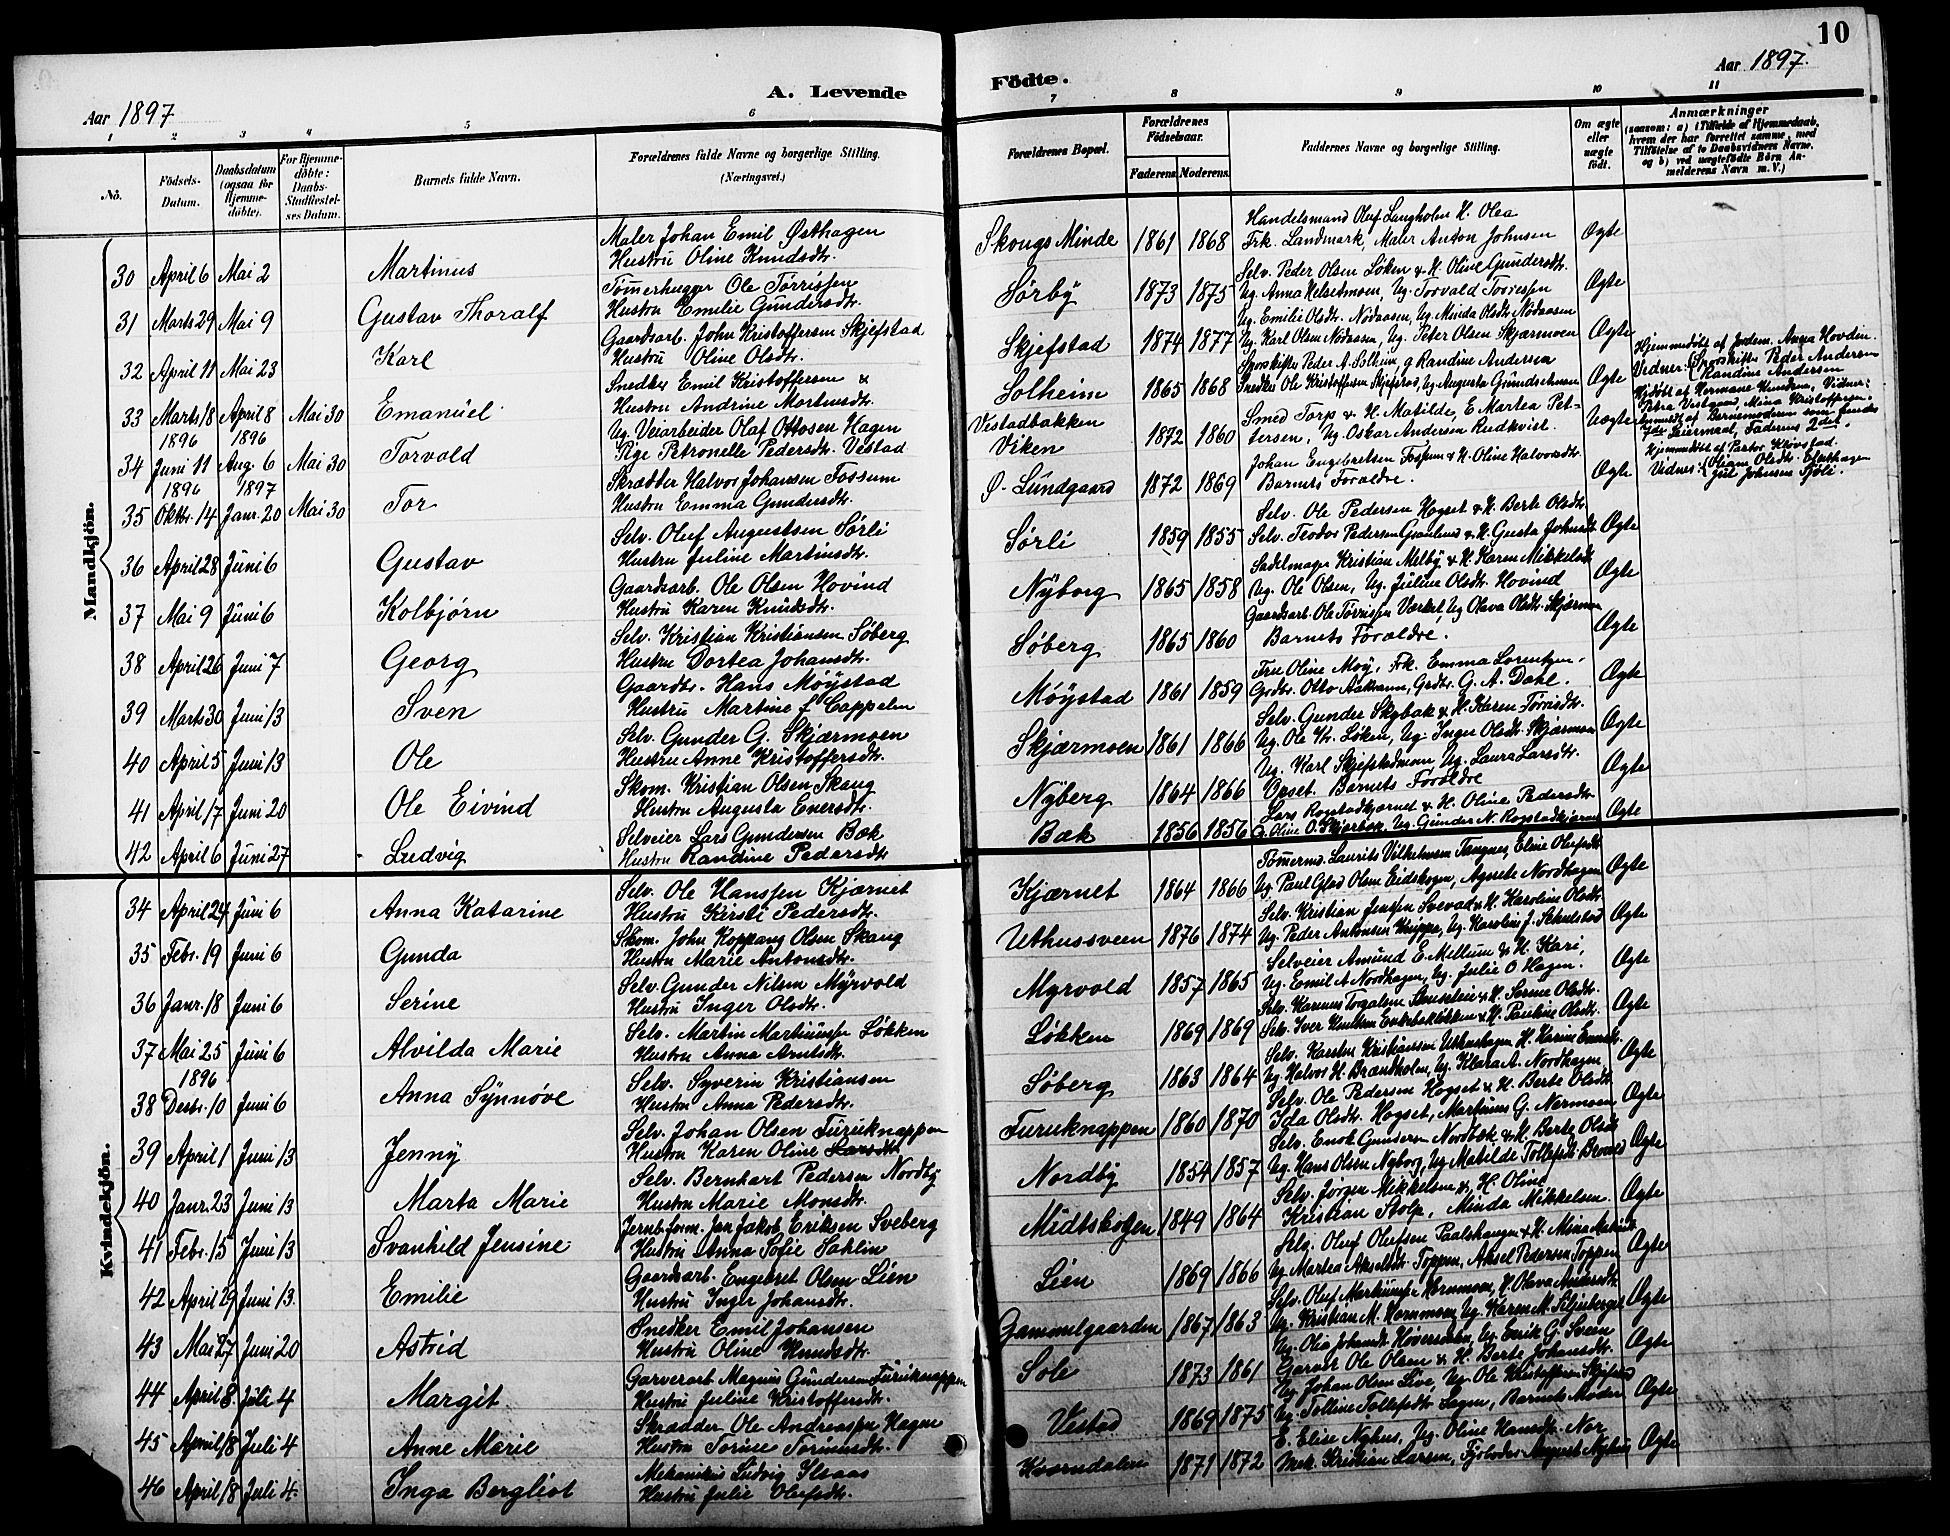 10
Aar 1897
A. Levende
Födte.
Aar 1897.
1 2 3 4 5 6 7 8 9 10 11
No.
Födsels-Datum.
Daabsdatum (ogsaa for Hjemmedöbte).
For Hjemmedöbte: Daabs-Stadfæstelses Datum.
Barnets fulde Navn.
Forældrenes fulde Navne og borgerlige Stilling. (Næringsvei.)
Forældrenes Bopæl.
Forældrenes Födselsaar.
Faderens. Moderens.
Faddernes Navne og borgerlige Stilling.
Om ægte eller uægte födt.
Anmærkninger
(saasom: a) i Tilfælde af Hjemmedaab, hvem der har forrettet samme, med Tilföielse af to Daabsvidners Navne. og b) ved uægtefödte Börn Anmelderens Navn m. V.)
Mandkjön.
30 April 6 Mai 2 Martinus Maler Johan Emil Østhagen
Hustru Oline Knudsdtr. Skougs Minde 1861 1868 Handelsmand Oluf Langholm H. Olea
Frk. Landmark, Maler Anton Johnsen Ægte
31 Marts 29 Mai 9 Gustav Thoralf Tömerhugger Ole Törrissen
Hustru Emilie Gundersdtr. Sørby 1873 1875 Selv. Peder Olsen Løken & H. Oline Gundersdtr.
Ug. Anna Helsetmoen, Ug. Torvald Torrissen Ægte
32 April 11 Mai 23 Karl Gaardsarb. John Kristoffersen Skjefstad
Hustru Oline Olsdtr. Skjefstad 1874 1877 Ug. Emilie Olsdtr. Nödaasen, Ug. Minda Olsdtr. Nödaasen
Ug. Karl Olsen Nödaasen, Ug. Peter Olsen Skjærmoen Ægte
33 Marts 18 1896 April 8 1896 Mai 30 Emanuel Snedker Emil Kristoffersen &
Hustru Andrine Mortensdtr. Solheim 1865 1868 Sporskifter Peder A. Solheim, g Randine Andersen
Snedker Ole Kristoffersen Skjefstad, Ug. Augusta Gundersen Ægte Hjemmedøbt af Jordem. Anna Hovdin.
Vidner: Sporskifter Peder Andersen
Randine Andersen
34 Juni 11 1896 Aug. 6 1897 Mai 30 Torvald Ug. Veiarbeider Olaf Ottosen Hagen
Pige Petronelle Pedersdtr. Vestad Vestadbakken
Viken 1872 1860 Smed Torp & H. Matilde, E Martea Pettersen, Ug. Oskar Andersen Rudkvist. Uægte
35 Oktbr. 14 Janr. 20 Mai 30 Tor Skrædder Halvor Johansen Fossum
Hustru Emma Gundersdtr. Ø. Lundgaard 1872 1869 Johan Engebretsen Fossum & H. Oline Halvorsdtr.
Barnets Forældre. Ægte Hjemmedøbt af Pastor Klovstad.
36 April 28 Juni 6 Gustav Selv. Oluf Augustsen Sørli
Hustru Juline Martinsdtr. Sørli 1859 1855 Selv. Ole Pedersen Hogset & H. Berte Olsdtr.
Selv. Teodor Pedersen & H. Gusta Johnsdtr. Ægte
37 Mai 9 Juni 6 Kolbjørn Gaardsarb. Ole Olsen Hovind
Hustru Karen Knudsdtr. Nyborg 1865 1858 Sadelmager Kristian Melby & H. Karen Mikkelsdtr.
Ug. Ole Olsen, Ug. Juline Olsdtr. Hovind Ægte
38 April 26 Juni 7 Georg Selv. Kristian Kristiansen Søberg
Hustru Dortea Johansdtr. Søberg 1865 1860 Gaardsarb. Ole Törrissen, Ug. Olava Olsdtr.
Barnets Forældre. Ægte
39 Marts 30 Juni 13 Sven Gaardbr. Hans Møystad
Hustru Martine f. Cappelen Møystad 1861 1859 Fru Oline Møy, Frk. Emma Lorentzen,
Grdbr. Otto Aakrann, Grdbr. G. A. Dahl. Ægte
40 April 5 Juni 13 Ole Selv. Gunder G. Skjærmoen
Hustru Anne Kristoffersdtr. Skjærmoen 1861 1866 Selv. Gunder Skybak & H. Karen Törrisdtr.
Ug. Ole Kr. Løken, Ug. Inger Olsdtr. Skjærmoen Ægte
41 April 17 Juni 20 Ole Eivind Skom. Kristian Olsen Skang
Hustru Augusta Enersdtr. Nyberg 1864 1866 Ug. Karl Skjefstadmoen, Ug. Laura Larsdtr.
Opset. Barnets Forældre Ægte
42 April 6 Juni 27 Ludvig Selveier Lars Gundersen Bæk
Hustru Randine Pedersdtr. Bæk 1856 1856 Lars Rogstadkjærnet & H. Oline Pedersdtr. Ægte
Kvindekjön.
34 April 24 Juni 6 Anna Katarine Selv. Ole Hanssen Kjærnet
Hustru Kristi Pedersdtr. Kjærnet 1864 1866 Tömermd. Laurits Vilhelmsen Tangnes, Eline Olufsdtr.
Ug. Paul Glad Olsen Eidskogen, Agnete Nordhagen Ægte
35 Febr. 19 Juni 6 Gunda Skom. John Koppang Olsen Skang
Hustru Marie Antonsdtr. Uthussveen 1876 1874 Selv. Kristian Jenssen Svevad & H. Karoline Olsdtr.
Ug. Peder Antonsen, Ug. Karoline J. Ægte
36 Janr. 18 Juni 6 Serine Selv. Gunder Nilsen Myrvold
Hustru Inger Olsdtr. Myrvold 1857 1865 Selveier Amund E. Mellum & H. Kari,
Ug. Emil A. Nordhagen, Ug. Julie O. Hagen. Ægte
37 Mai 25 1896 Juni 6 Alvilda Marie Selv. Martin Martinusen Løkken
Hustru Anna Arntsdtr. Løkken 1869 1869 Ægte
38 Desbr. 10 Juni 6 Anna Synnøve Selv. Syverin Kristiansen
Hustru Anna Pedersdtr. Søberg 1863 1864 Selv. Karsten Kristiansen Uthushagen H. Karine
Ug. Halvor H. Brændholen, Ug. Klara A. Nordhagen Ægte
39 April 1 Juni 13 Jenny Selv. Johan Olsen Furuknappen
Hustru Karen Oline Larsdtr. Furuknappen 1860 1870 Selv. Ole Pedersen Hogset & H. Berte Olsdtr.
Ida Olsdtr. Hogset, Martinus G. Nermoen Ægte
40 Janr. 23 Juni 13 Marta Marie Selv. Bernhart Pedersen Nordby
Hustru Marie Monsdtr. Nordby 1854 1857 Selv. Enok Gundersen Nordbæk & H. Berte Olsdtr.
Ug. Hans Olsen Nyborg, Ug. Matilde Tollefsdtr. Ægte
41 Febr. 15 Juni 13 Svanhild Jensine Jernb.form. Jens Jakob Eriksen Sveberg
Hustru Anna Sofie Sahlin Midtskogen 1849 1864 Selv. Jørgen Mikkelsen & H. Oline
Kristian Stolp, Minda Mikkelsen. Ægte
42 April 29 Juni 13. Emilie Gaardsarb. Engebret Olsen Lien
Hustru Inger Johansdtr. Lien 1869 1866 Selv. Oluf Olufsen Paalshaugen & H. Mina
Ug. Martea Akselsdtr. Toppen, Aksel Pedersen Toppen Ægte
43 Mai 27 Juni 20 Astrid Snedker Emil Johansen
Hustru Oline Knudsdtr. Gammelgaarden 1867 1863 Selv. Oluf Martinusen Hornmoen, H. Olava
Ug. Kristian M. Hornmoen, Ug. Karen M. Ægte
44 April 8. Juli 4 Margit Garverarb. Magnus Gundersen Furuknappen
Hustru Juline Kristoffersdtr. Sole 1873 1861 Garver Ole Olsen & H. Berte Johansdtr. Ægte
45 April 18 Juli 4 Anne Marie Skrædder Ole Andreassen Hagen
Hustru Torine Torinusdtr. Vestad 1869 1875 Ug. Johan Olsen Live, Ug. Ole Kristoffersen
Ug. Tolline Tollefsdtr. Sagen, Barnets Moder Ægte
46 April 18 Juli 4. Inga Bergliot Mekanikus Ludvig Ilsaas
Hustru Julie Olufsdtr. Kværndalen 1871 1872 E. Elise Nyhus, Ug. Oline Hansdtr. Nor
Mek. Kristian Larsen, August Nyhus Ægte